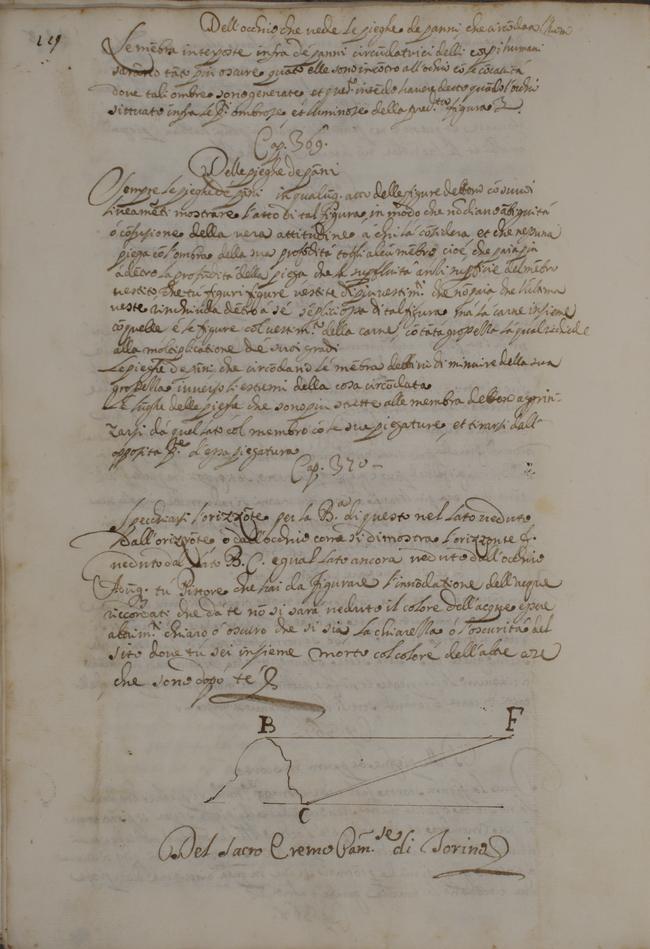 129
Dell'occhio che vede le pieghe de panni che circōdan l'huō
Le mēbra interposte infra de panni circūdatrici delli corpi humani
sarāno tāto piu oscure quāto elle sono incōtro all'ochio cō le cōcavità
dove tali ombre sono generate et intēdo haver detto quādo l'ochio
è situato infra le ombrose et luminose della figura
Cap. 369.
Delle pieghe de pāni
Sempre le pieghe de pāni in qualunq. atto delle figure debbono cō suoi
lineamēti mostrare l'atto di tal figura, in modo che nō diano ābiguità
ò cōfusione della vera attitudine a chi la cōsidera et che nessuna
piega cō l'ombra della sua profōdità togli alcū mēbro cioè che paia piu
adētro la profōdità della piega che la superficie del mēbro
vestito che tu figuri figure vestite di piu vestimēti che nō paia che l'ultima
veste rinchiuda dētro a sé semplici ossa di tal figura ma la carne insieme
cō quelle è le figure col vestimēto della carne, cō tāta gropella la qual richiede
alla moltiplicatione de suoi gradi
Le pieghe de pāni che circōdano le mēbra debbono diminuire della sua
gropella inverso li estremi della cosa circōdata
Le lughe delle pieghe che sono piu strette alle membra debbono agrin-
zarsi da quel lato col membro cō le sue piegature, et tirarsi dall'
opposita parte d'essa piegatura
Cap. 370 -
Specchiasi l'orizzōte per la B. di questo nel lato veduto
dall'orizzōte ò dall'occhio come si dimostra l'orizzonte F.
veduto dal lato B. C. equal lato ancora veduto dall'occhio
Adūq. tu Pittore che hai da figurare l'innōdatione dell'acque
riccordati che da te nō si sarà veduto il colore dell'acque essere
altrimēti chiaro ò oscuro che si sia la chiarella ò l'oscurità del
sito dove tu sei insieme misto col colore dell'altre cose
che sono dopò te
B F
C
Del Sacro Eremo Cam.se di Torino